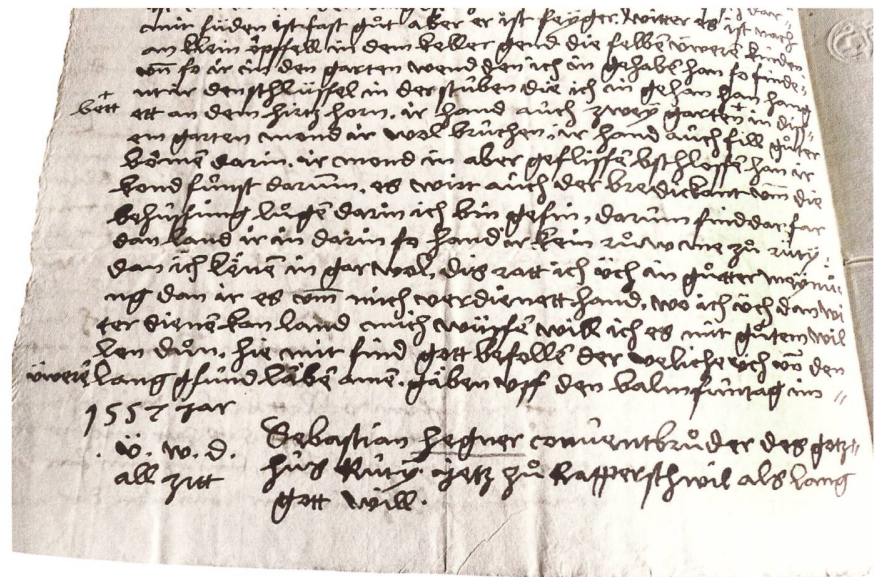 mit süden ist fast gůt aber er ist seyger. witter es ist noch
an klein öpffell in dem keller gend die selben üweren kinden
vn̄ so ir in den garten wend den ich in gehabt han so finde
ntir den schlüssel in der stuben die ich in gehan han hang
bett ett an dem hirtz horn. ir hand auch zwey garten in diss
em garten mend ir wol brüchen. ir hand auch fill gůtter
bömē darin. ir mond in aber geflissē bschlossē han ir
kond sunst darum̄. es wirt auch der bredickant vm̄ die
behussung lůgē darin ich bin gesin, darum sind dar far
dan land ir in darin so hand ir kein růw me zů rüty
dan ich kenē in gar wol, dis ratt ich üch in gůtter meynu
ng dan ir es vm̄ mich verdienett hand, wo ich üch dan wi
ter dienē kan land mich wüssē will ich es mit gůtem wil
len důn. hie mit sind gott befollē der weliche üch vn̄ den
üwerē lang gsund läbē amen. gäben vff den balmsuntag im
1557 Jar
. ü. w. d.
all zitt
Sebastian hegner conuentbrůder des gotz
hus Rüty. yetz zů Rapperschwil als lang
gott will.